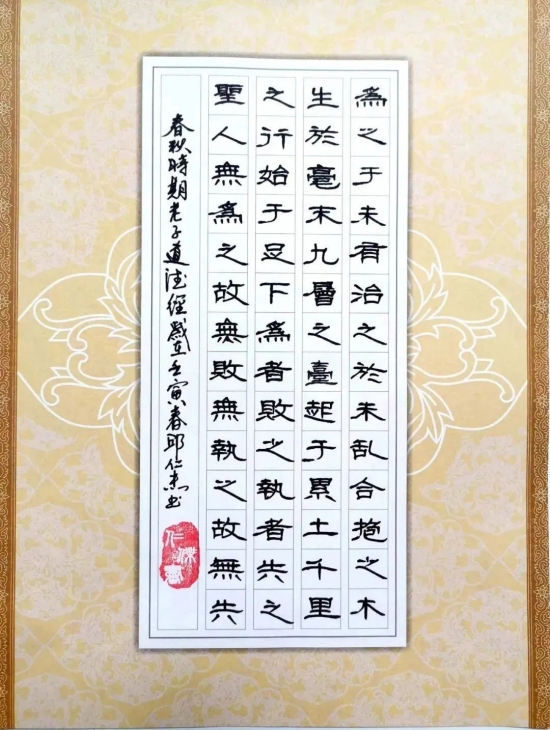 為之于未有治之於未乱合抱之木
生於毫末九層之臺起于累土千里
之行始于足下為者敗之執者失之
聖人無為之故無敗無執之故無失
春秋時期老子道德經歲在壬寅春邱仁杰书